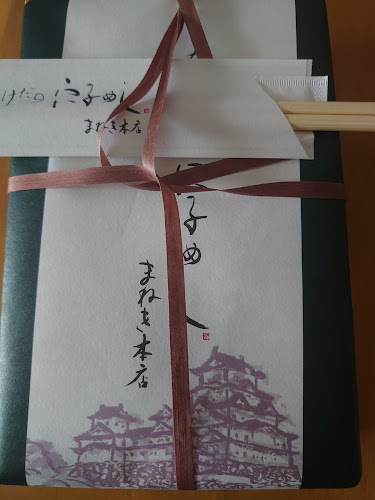 けだの 穴子めし
まねき本店
穴子めし
まねき本店